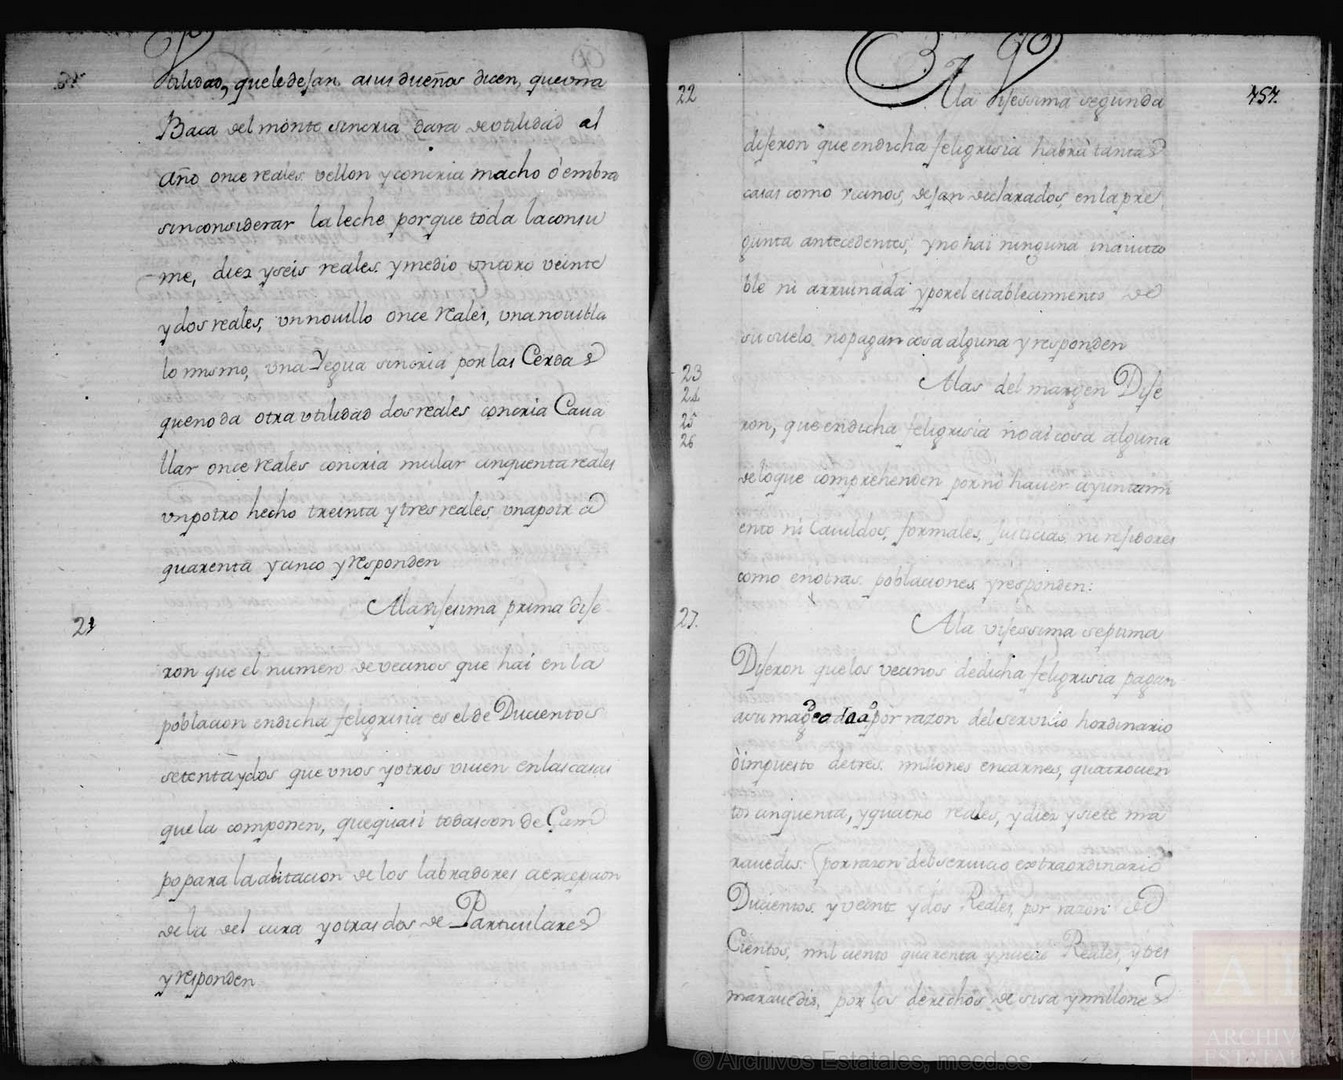 utilidad, que le dejan asus dueños dicen, que una
Baca del monte sincria dara de utilidad al
año once reales vellon y concria macho ò embra
sin considerar la leche porque toda la consu
me, diez y seis reales y medio un toro veinte
y dos reales, un nouillo once reales, una nouilla
lo mismo, una Yegua sincria por las Cerdas
que no da otra utilidad dos reales concria Caua
llar once reales concria mular cinquenta reales
un potro hecho treinta y tres reales, una potra
quarenta y cinco y responden
21
Ala visesima prima dije
ron que el numero de vecinos que hai en la
poblacion en dicha feligrisia es el de Ducientos
setenta y dos que unos y otros viuen en las casas
que la componen, que quasi todas son de Cam
po para la abitacion de los labradores, aexcepcion
de la del cura y otras dos de Particulares
y responden
22
Ala visessima segunda
757.
dijeron que en dicha feligrisia habrà tantas
casas como vecinos, dejan declarados, en la pre
gunta antecedentes, y no hai ninguna inauita
ble ni arruinada y por el establecimiento de
su suelo, no pagan cosa alguna y responden
23
24
25
26
Alas del margen Dije
ron, que en dicha feligrisia no ai cosa alguna
de loque comprehenden por no hauer ayuntam
ento ni Cauildos, formales, Justicias, ni rejidores
como en otras poblaciones y responden:
27.
Ala visessima septima
Dijeron que los vecinos de dicha feligrisia pagan
asu magd por razon del seruicio hordinario
ò impuesto de tres millones en carnes, quatrocien
tos cinquenta, y quatro reales, y diez y siete ma
rauedis. por razon del seruicio extraordinario
Ducientos y veinte y dos Reales, por razon de
Cientos, mil ciento quarenta y nueve Reales, y tres
marauedis, por los derechos de sisa y millones
© Archivos Estatales, mecd.es